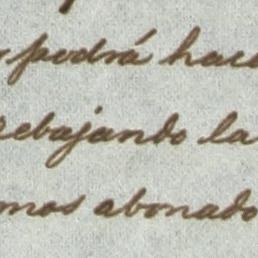 podrá hace
rebajando la
mos abonado